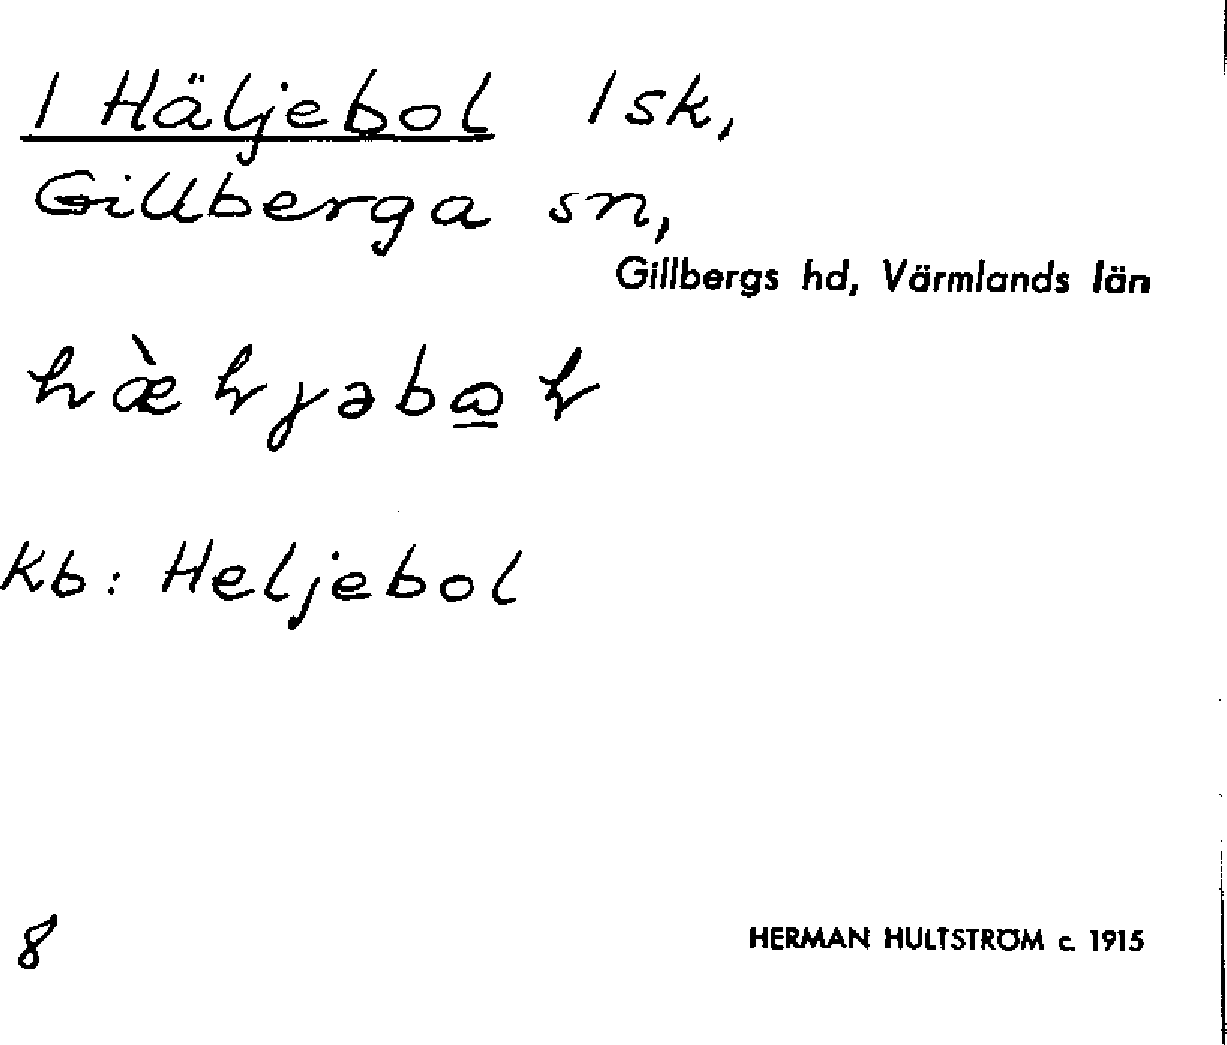 1 Häljebol 1 sk,
Gillberga sn,
Gillbergs hd, Värmlands län
Kb: Heljebol
8
HERMAN HULTSTRÖM c. 1915